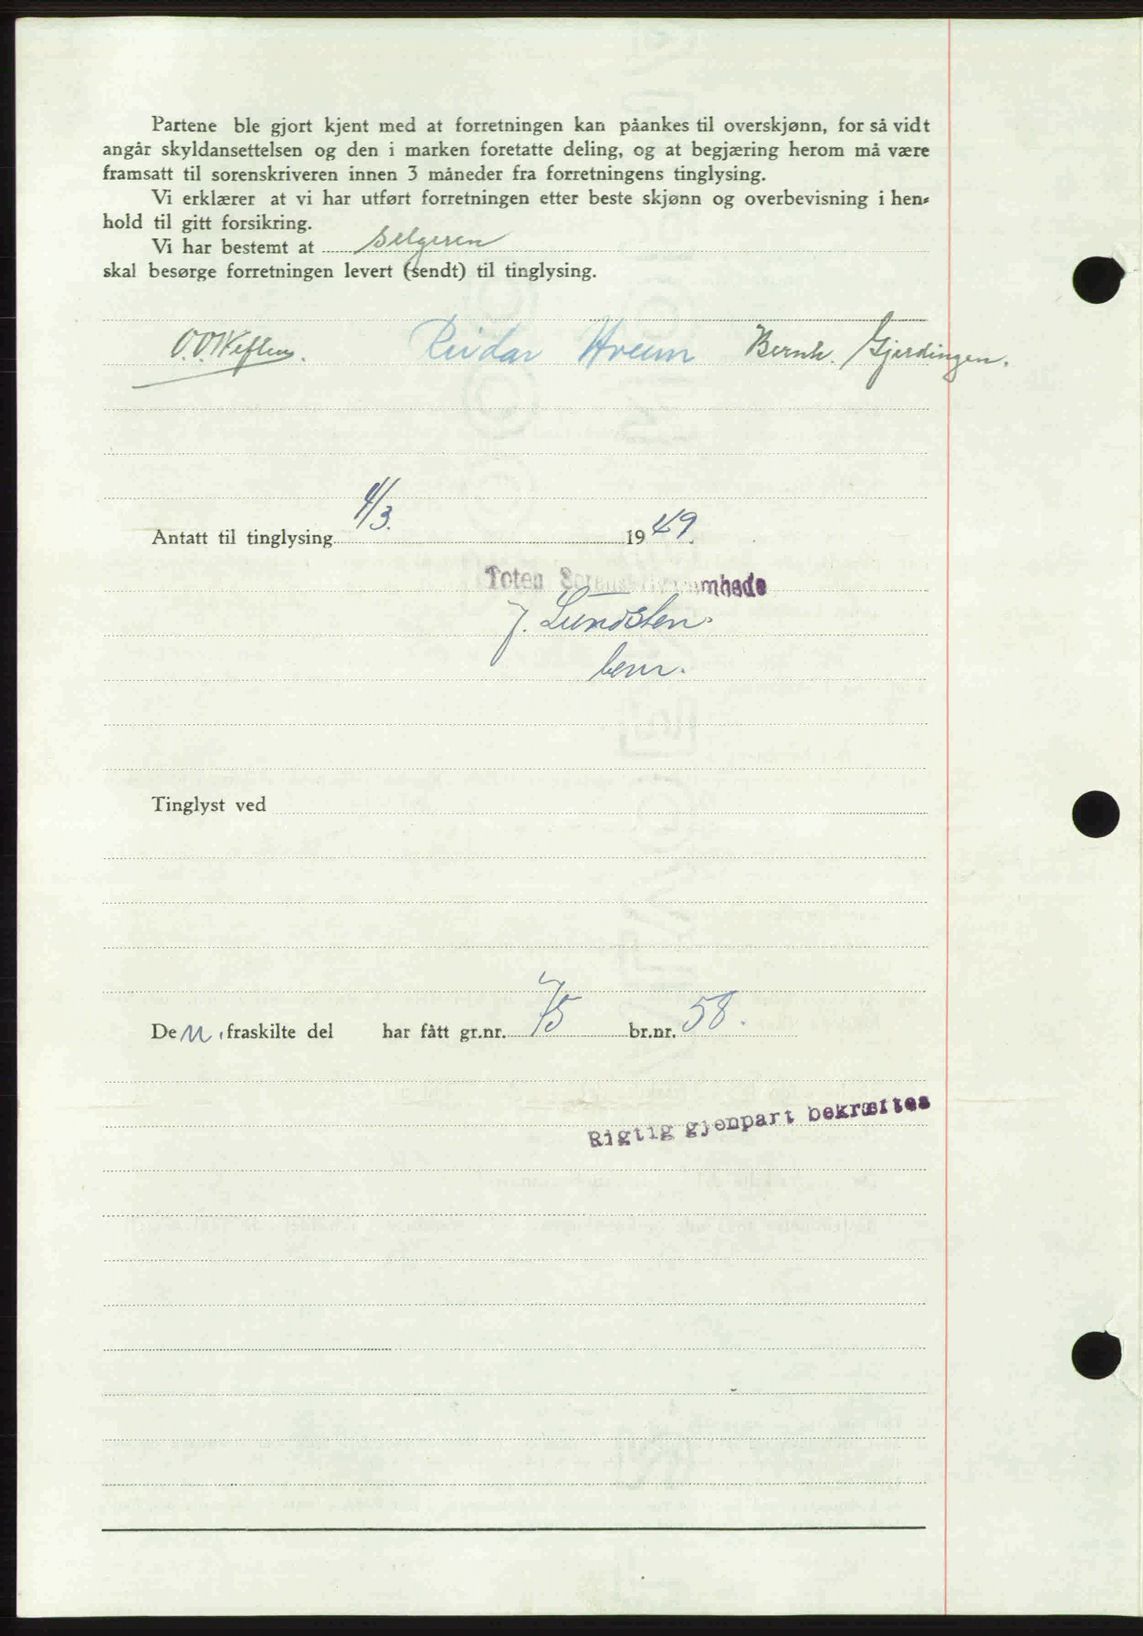 Partene ble gjort kjent med at forretningen kan påankes til overskjønn, for så vidt
angår skyldansettelsen og den i marken foretatte deling, og at begjæring herom må være
framsatt til sorenskriveren innen 3 måneder fra forretningens tinglysing.
Vi erklærer at vi har utført forretningen etter beste skjønn og overbevisning i hen-
hold til gitt forsikring.
Vi har bestemt at selgeren
skal besørge forretningen levert (sendt) til tinglysing.
Reidar Hveem Bernh. Gjerdingen.
Antatt til tinglysing 4/3. 1949.
Toten Sorenskriverembede
J. Lundsten.
bem.
Tinglyst ved
Den fraskilte del har fått gr.nr. 75 br.nr. 58.
Rigtig gjenpart bekræftes